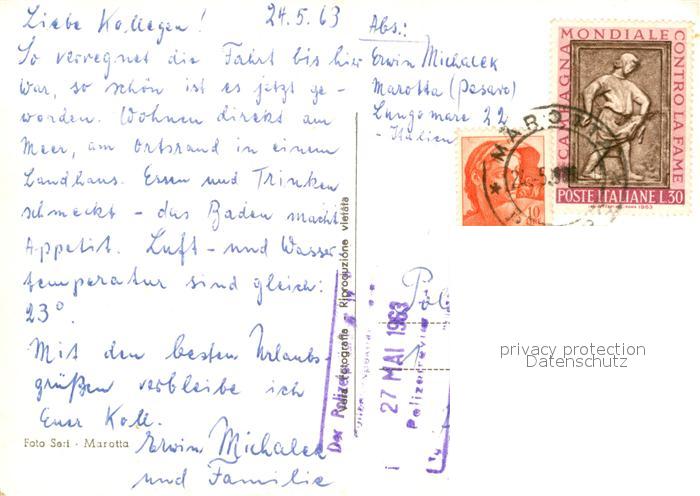 Liebe Kollegen!
24.5.63
So verregnet die Fahrt bis hier
war, so schön ist es jetzt ge-
worden. Wohnen direkt am
Meer, am Ortsrand in einem
Landhaus. Essen und Trinken
schmeckt - das Baden macht
Appetit. Luft- und Wasser-
temperatur sind gleich:
23°.
Mit den besten Urlaubs-
grüßen verbleibe ich
Euer Koll.
Erwin Michalek
und Familie
Foto Seri - Marotta
Abs.:
Erwin Michalek
Marotta (Pesaro)
Lungomare 22
- Italien
Vera Fotografia Riproduzione vietata
CAMPAGNA MONDIALE CONTRO LA FAME
POSTE ITALIANE L.30
10
MAROTTA
Pol
Der Polize
27 MAI 1963
Polizeirevie
privacy protection
Datenschutz